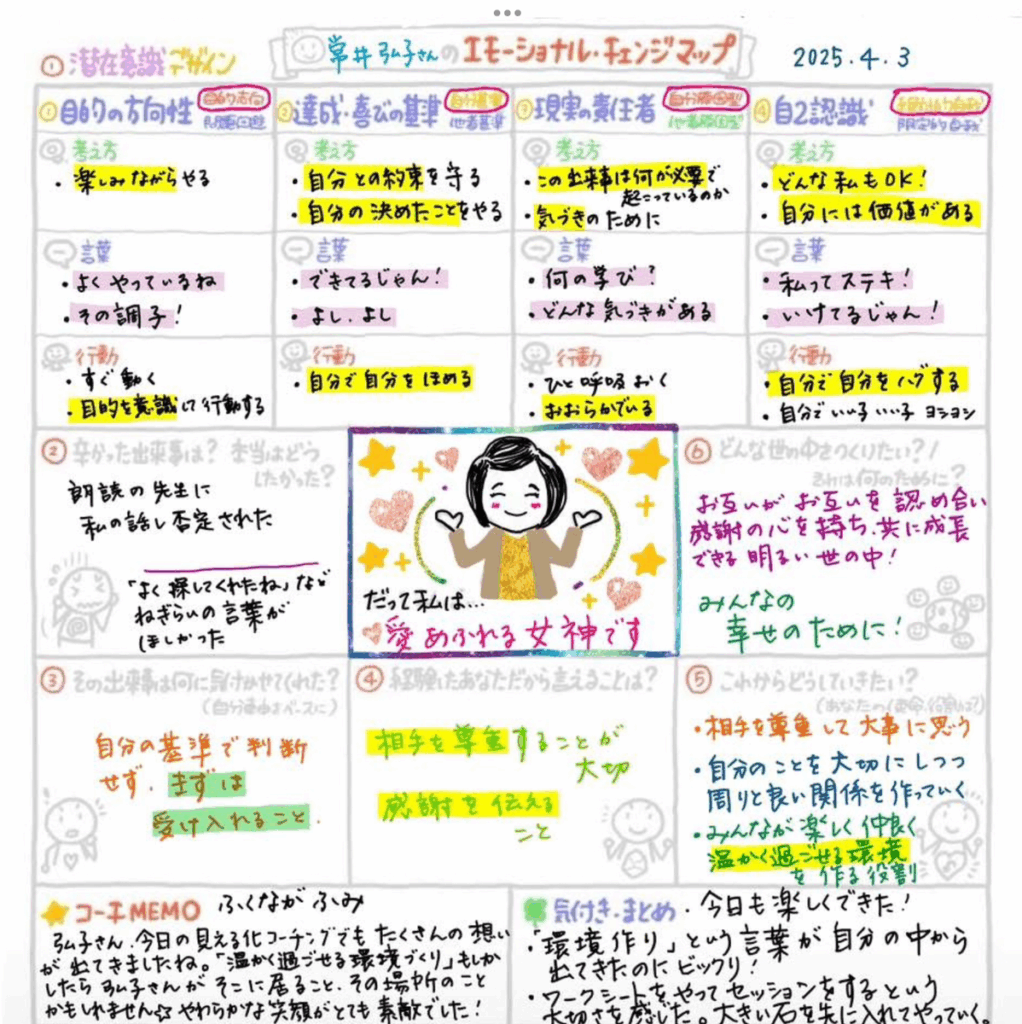 常井弘子さんのエモーショナル・チェンジマップ
2025.4.3
① 潜在意識デザイン
① 目的の方向性
目的志向
問題回避
② 達成・喜びの基準
自分基準
他者基準
③ 現実の責任者
自分原因型
他者原因型
④ 自己認識
限定的自我
考え方
・楽しみながらやる
考え方
・自分との約束を守る
・自分の決めたことをやる
考え方
・この出来事は何が必要で
起こっているのか
・気づきのために
考え方
・どんな私もOK!
・自分には価値がある
言葉
・よくやっているね
・その調子!
言葉
・できてるじゃん!
・よし、よし
言葉
・何の学び?
・どんな気づきがある
言葉
・私ってステキ!
・いけてるじゃん!
行動
・すぐ動く
・目的を意識して行動する
行動
・自分で自分をほめる
行動
・ひと呼吸おく
・おおらかでいる
行動
・自分で自分をハグする
・自分でいい子いい子 ヨシヨシ
② 辛かった出来事は? 本当はどう
したかった?
朗読の先生に
私の話し否定された
「よく探してくれたね」など
ねぎらいの言葉が
ほしかった
だって私は...
愛あふれる女神です
⑥ どんな世の中をつくりたい?
それは何のために?
お互いがお互いを認め合い
感謝の心を持ち、共に成長
できる明るい世の中!
みんなの
幸せのために!
③ その出来事は何に気付かせてくれた?
自分の基準で判断
せず、まずは
受け入れること.
④ 経験したあなただから言えることは?
相手を尊重することが
大切
感謝を伝える
こと
⑤ これからどうしていきたい?
(あなたの使命、役割は?)
・相手を尊重して大事に思う
・自分のことを大切にしつつ
周りと良い関係を作っていく
・みんなが楽しく仲良く
温かく過ごせる環境
を作る役割
コーチMEMO ふくながふみ
弘子さん、今日の見える化コーチングでもたくさんの想い
が出てきましたね。「温かく過ごせる環境づくり」もしか
したら弘子さんがそこに居ること、その場所のこと
かもしれません☆やわらかな笑顔がとても素敵でした!
気付き・まとめ
・今日も楽しくできた!
・「環境作り」という言葉が自分の中から
出てきたのにビックリ!
・ワークシートをやってセッションをするという
大切さを感じた。大きい石を先に入れてやっていく。